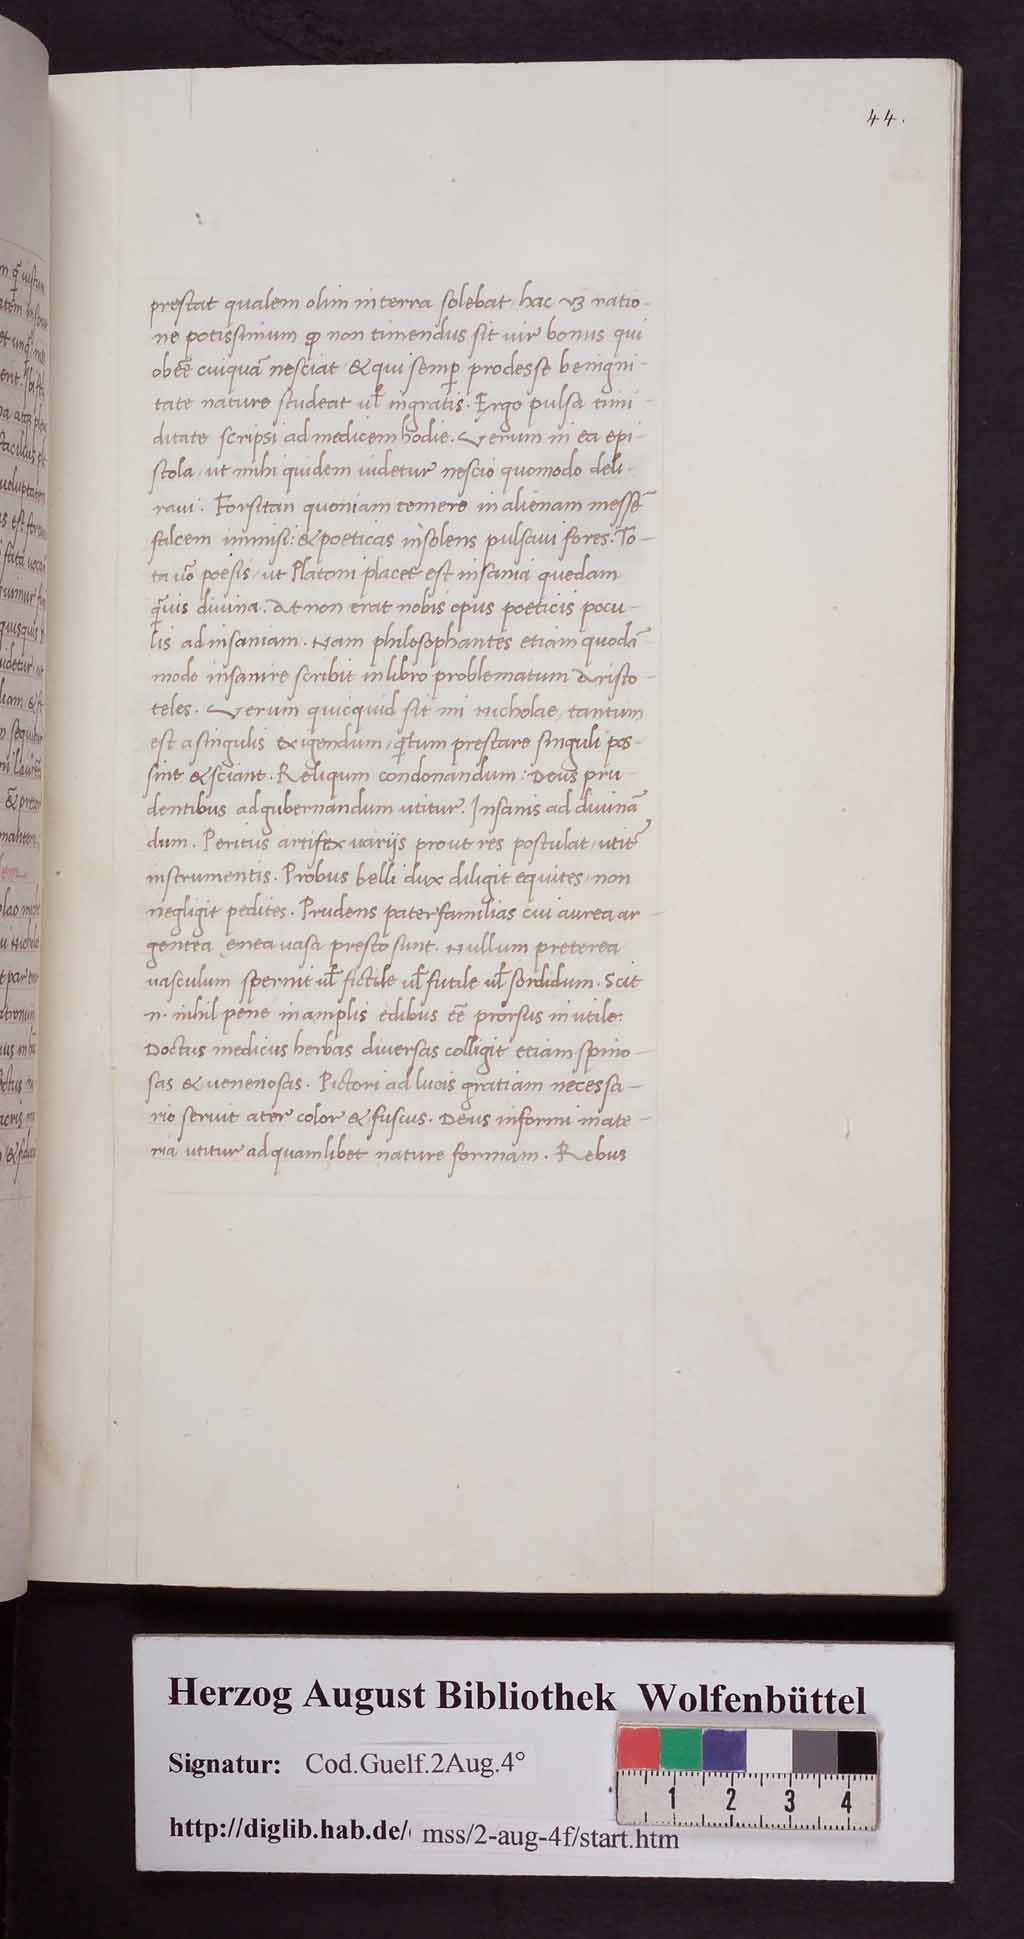 44.
prestat qualem olim in terra solebat, hac vʒ ratio-
ne potissimum ꝙ non timendus sit uir bonus qui
obēē cuiquā nesciat, & qui semꝑ prodesse benigni-
tate nature studeat ul̄ ingratis. Ergo pulsa timi-
ditate scripsi ad medicem hodie. Verum in ea epi-
stola, ut mihi quidem uidetur nescio quomodo deli-
raui. Forsitan quoniam temere in alienam messē
falcem immisi: & poeticas insolens pulsaui fores. To-
ta uō poesis, ut Platoni placet est insania quedam
q̄uis diuina. At non erat nobis opus poeticis pocu-
lis ad insaniam. Nam philosophantes etiam quodā
modo insanire scribit in libro problematum Aristo-
teles. Verum quicquid sit mi Nicholae, tantum
est a singulis exigendum, q̄tum prestare singuli pos-
sint & sciant. Reliqum condonandum: Deus pru-
dentibus ad gubernandum utitur. Insanis ad diuinā
dum. Peritus artifex uariis prout res postulat, utit̄
instrumentis. Probus belli dux diligit equites, non
negligit pedites. Prudens paterfamilias cui aurea ar-
gentea ęnea uasa presto sunt. Nullum preterea
uasculum spernit ul̄ fictile ul̄ futile ul̄ sordidum. Scit
.n. nihil pene in amplis edibus ēē prorsus inutile.
Doctus medicus herbas diuersas colligit etiam spino-
sas & uenenosas. Pictori ad lucis gratiam necessa-
rio seruit ater color & fuscus. Deus informi mate-
ria utitur ad quamlibet nature formam. Rebus
Herzog August Bibliothek Wolfenbüttel
Signatur: Cod.Guelf.2Aug.4°
1 2 3 4
http://diglib.hab.de/ mss/2-aug-4f/start.htm